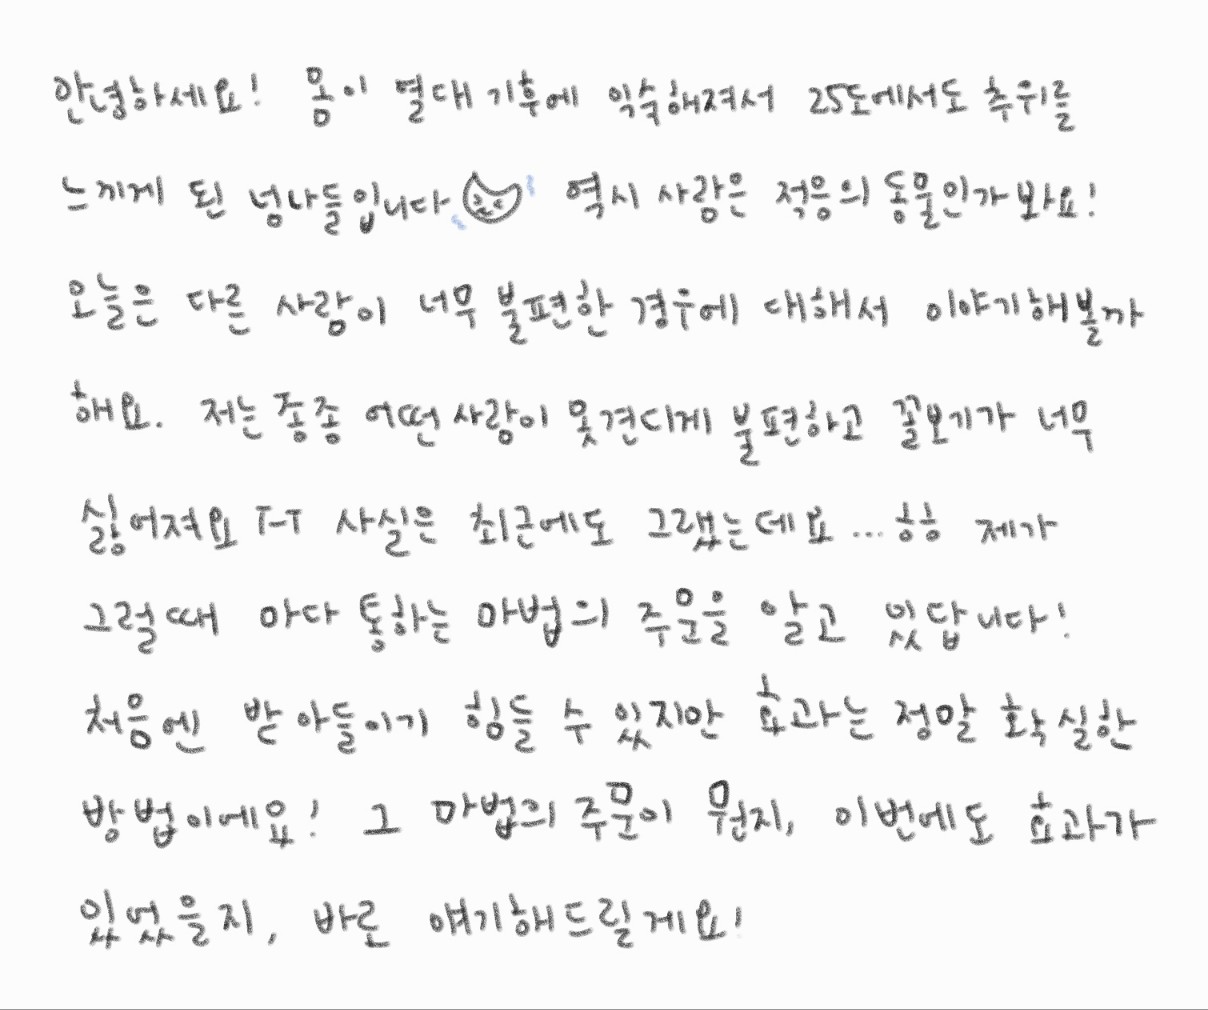 안녕하세요! 몸이 열대 기후에 익숙해져서 25도에서도 추위를
느끼게 된 넝나들입니다 역시 사람은 적응의 동물인가봐요!
오늘은 다른 사람이 너무 불편한 경우에 대해서 이야기해볼까
해요. 저는 종종 어떤 사람이 못견디게 불편하고 꼴보기가 너무
싫어져요 T-T 사실은 최근에도 그랬는데요... 핳핳 제가
그럴때 마다 통하는 마법의 주문을 알고 있답니다!
처음엔 받아들이기 힘들 수 있지만 효과는 정말 확실한
방법이에요! 그 마법의 주문이 뭔지, 이번에도 효과가
있었을지, 바로 얘기해드릴게요!